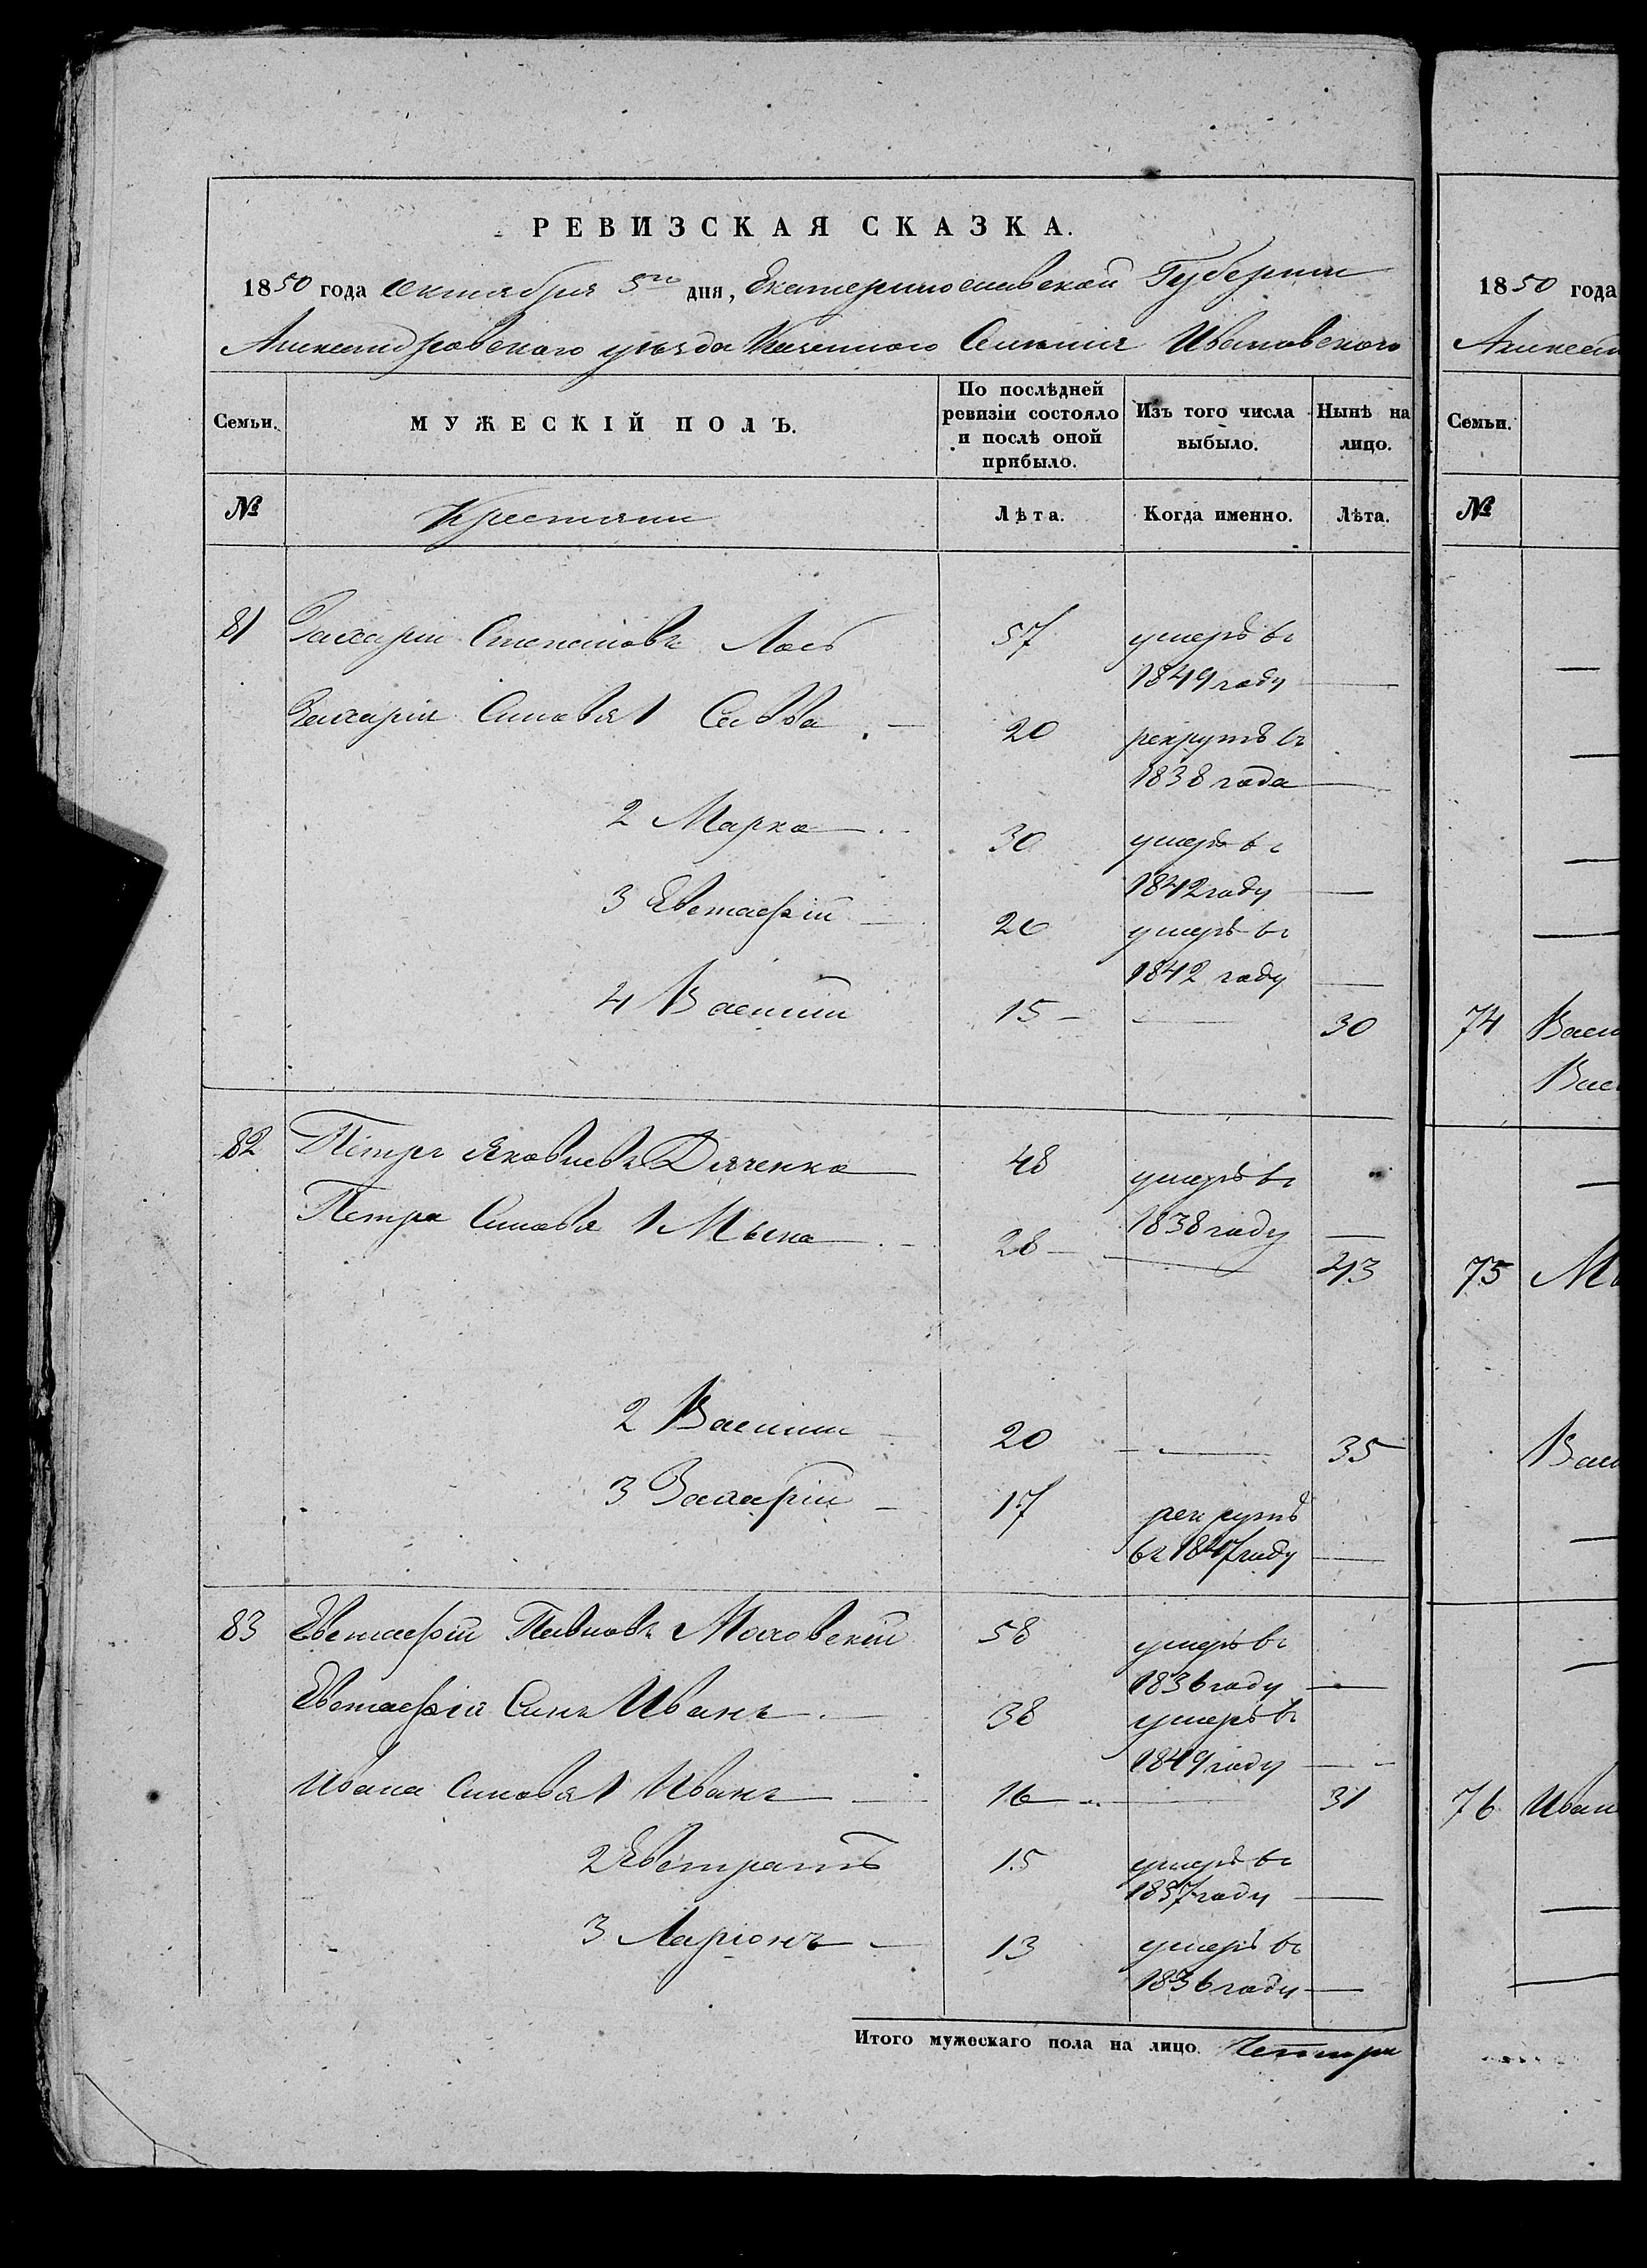 РЕВИЗСКАЯ СКАЗКА.
1850 года Октября 5го дня, Екатеринославской Губернии
Александровского уезда Казенного Селения Ивановского
Семьи. МУЖЕСКІЙ ПОЛЪ. По послѣдней ревизіи состояло и послѣ оной прибыло. Изъ того числа выбыло. Нынѣ на лицо.
№ Крестяни Лѣта. Когда именно. Лѣта.
81 Захарий Степановъ Лось 57 умеръ въ
1849 году —
Захария Синовя 1 Савва — 20 рекрутъ въ
1838 года —
2 Марко — 30 умеръ въ
1842 году —
3 Евстафій — 26 умеръ въ
1842 году —
4 Василий 15 — — 30
82 Петръ Яковлевъ Дяченко 48 умеръ въ
1838 году —
Петра Синовя 1 Мына — 28 — — 43
2 Василий — 20 — 35
3 Захарий — 17 рекрутъ
въ 1847 году —
83 Евстафій Павловъ Маховский 58 умеръ въ
1836 году —
Евстафія Синъ Иванъ — 38 умеръ въ
1849 году —
Ивана Синовя 1 Иванъ — 16 — — 31
2 Евстратъ 15 умеръ въ
1837 году —
3 Ларіонъ — 13 умеръ въ
1836 году —
Итого мужескаго пола на лицо. Четири
1850 года
Семьи.
№
74
75
76 Иван